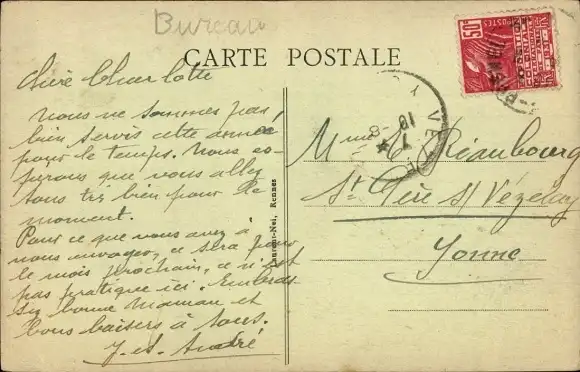 Bureau
CARTE POSTALE
50c
POSTES
Chère Charlotte
Nous ne sommes pas
bien servis cette année
pour le temps. Nous es-
perons que vous allez
tous très bien pour le
moment.
Pour ce que vous avez à
nous envoyer, ce sera pour
le mois prochain, ce n'est
pas pratique ici. Embras-
se bonne Maman et
bons baisers à tous.
Y. et André
Laurent-Nel, Rennes
Mme Réaubourg
St Père s/ Vézelay
Yonne